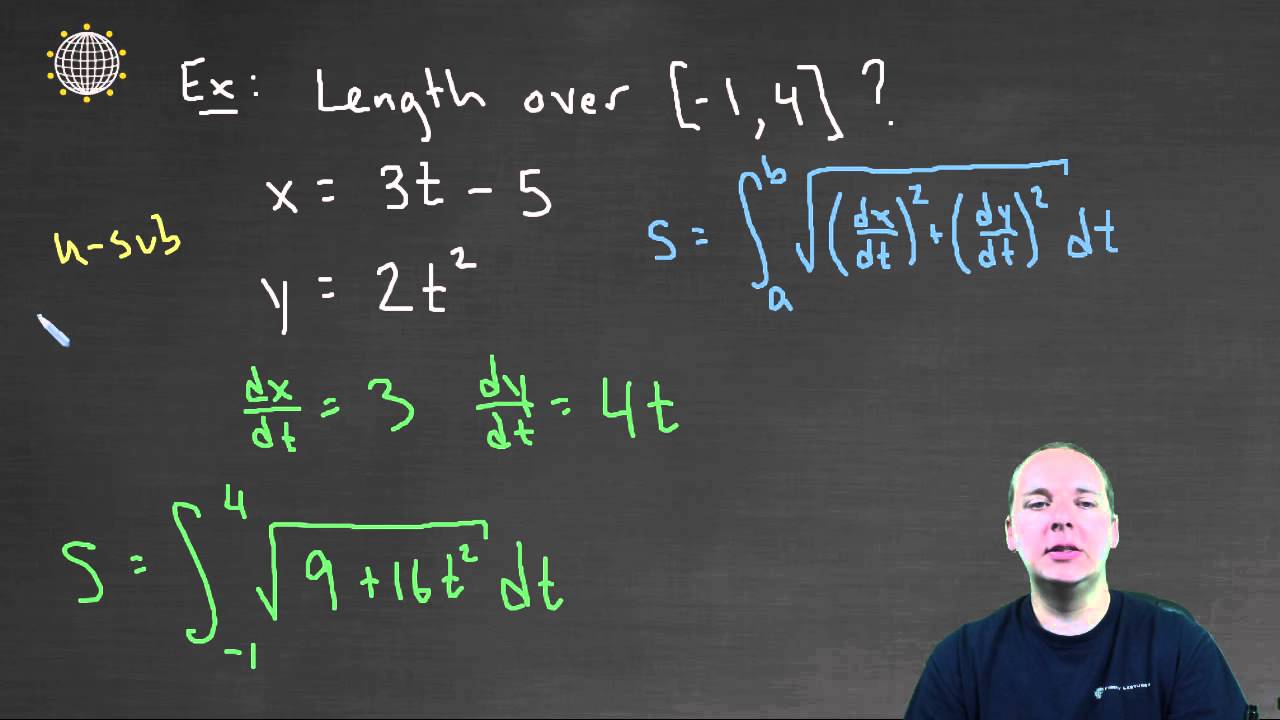 Ex: Length over [-1, 4] ?
x = 3t - 5
y = 2t²
u-sub
S = ∫_a^b √((dx/dt)² + (dy/dt)²) dt
dx/dt = 3 dy/dt = 4t
S = ∫_-1^4 √(9 + 16t²) dt